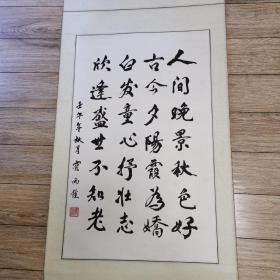 人间晚景秋色好
古今夕陽霞為嬌
白发童心抒壮志
欣逢盛世不知老
壬午年秋月